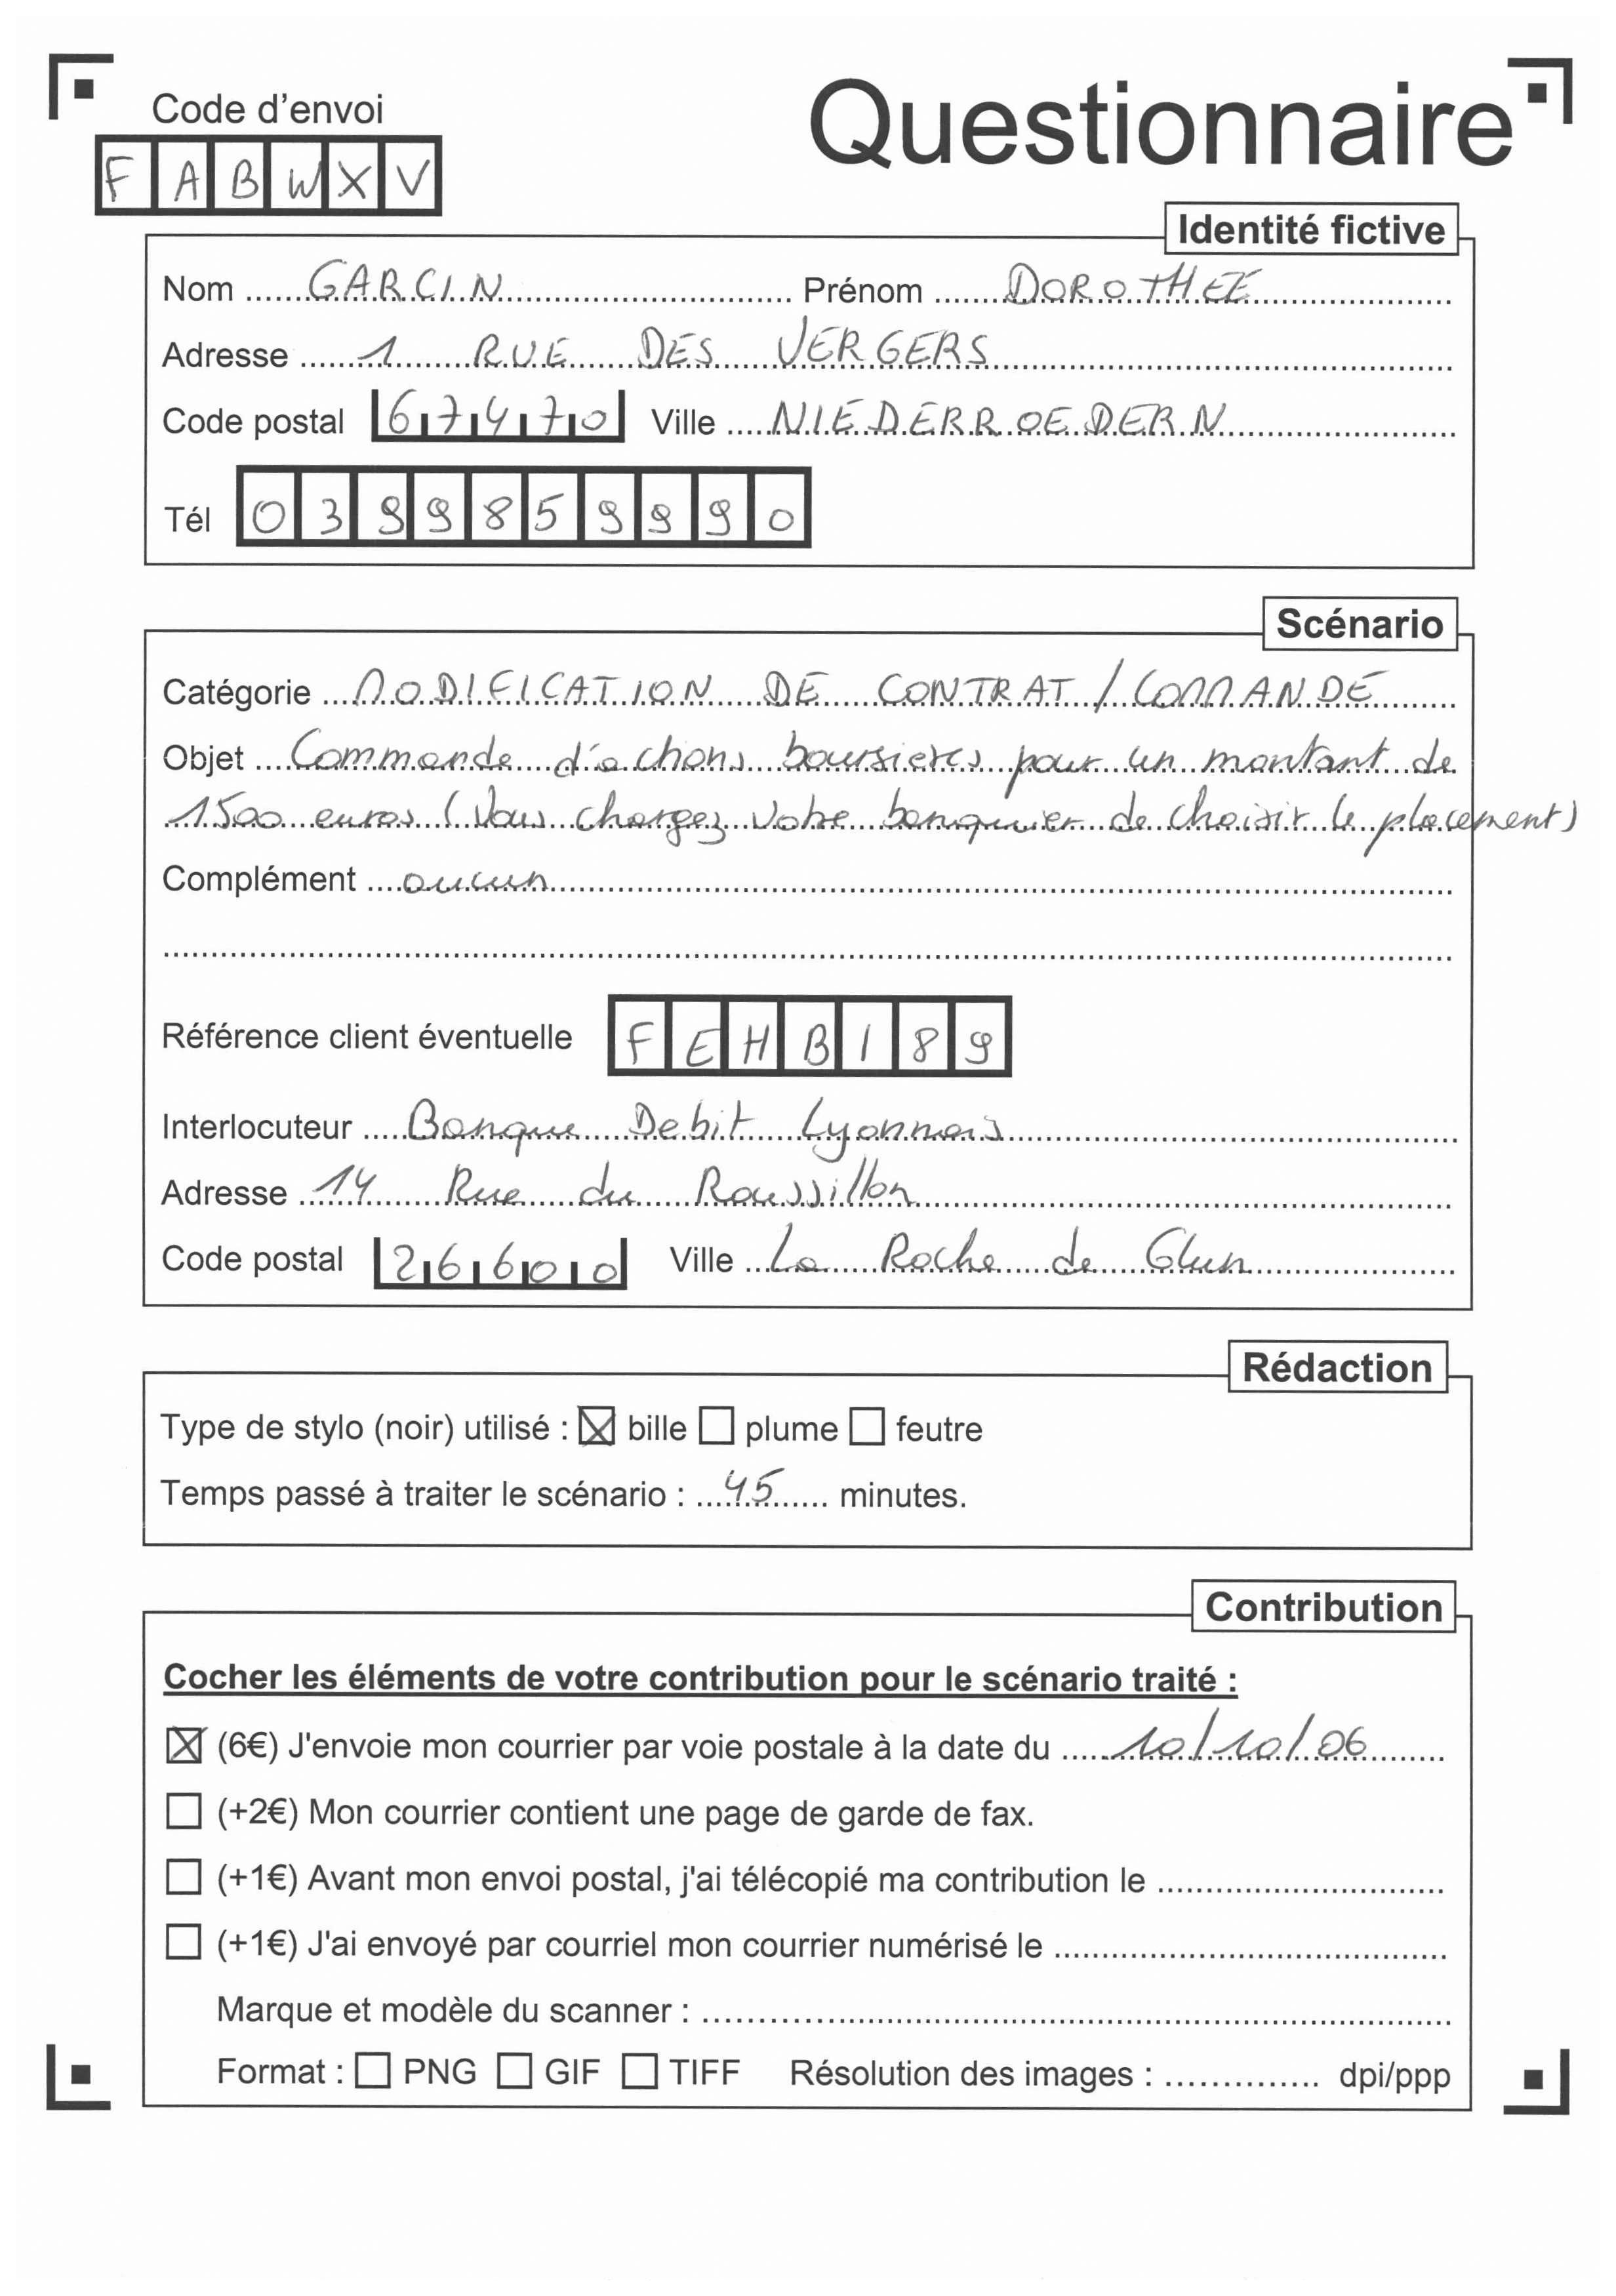 Code d'envoi
Questionnaire
F A B W X V
Identité fictive
Nom ...... GARCIN ...... Prénom ...... DOROTHEE ......
Adresse ...... 1 RUE DES VERGERS ......
Code postal 67470 Ville ...... NIEDERROEDERN ......
Tél 0399859990
Scénario
Catégorie ... MODIFICATION DE CONTRAT / COMMANDE ...
Objet ... Commande d'actions boursieres pour un montant de
1500 euros (Vous chargez votre banquier de choisir le placement)
Complément ... aucun ......
Référence client éventuelle F E H B I 8 9
Interlocuteur ... Banque Debit Lyonnais ......
Adresse ... 14 Rue du Roussillon ......
Code postal 26600 Ville ... La Roche de Glun ......
Rédaction
Type de stylo (noir) utilisé : ☒ bille ☐ plume ☐ feutre
Temps passé à traiter le scénario : ... 45 ... minutes.
Contribution
Cocher les éléments de votre contribution pour le scénario traité :
☒ (6€) J'envoie mon courrier par voie postale à la date du ... 10/10/06 ...
☐ (+2€) Mon courrier contient une page de garde de fax.
☐ (+1€) Avant mon envoi postal, j'ai télécopié ma contribution le ......
☐ (+1€) J'ai envoyé par courriel mon courrier numérisé le ......
Marque et modèle du scanner : ......
Format : ☐ PNG ☐ GIF ☐ TIFF Résolution des images : ...... dpi/ppp